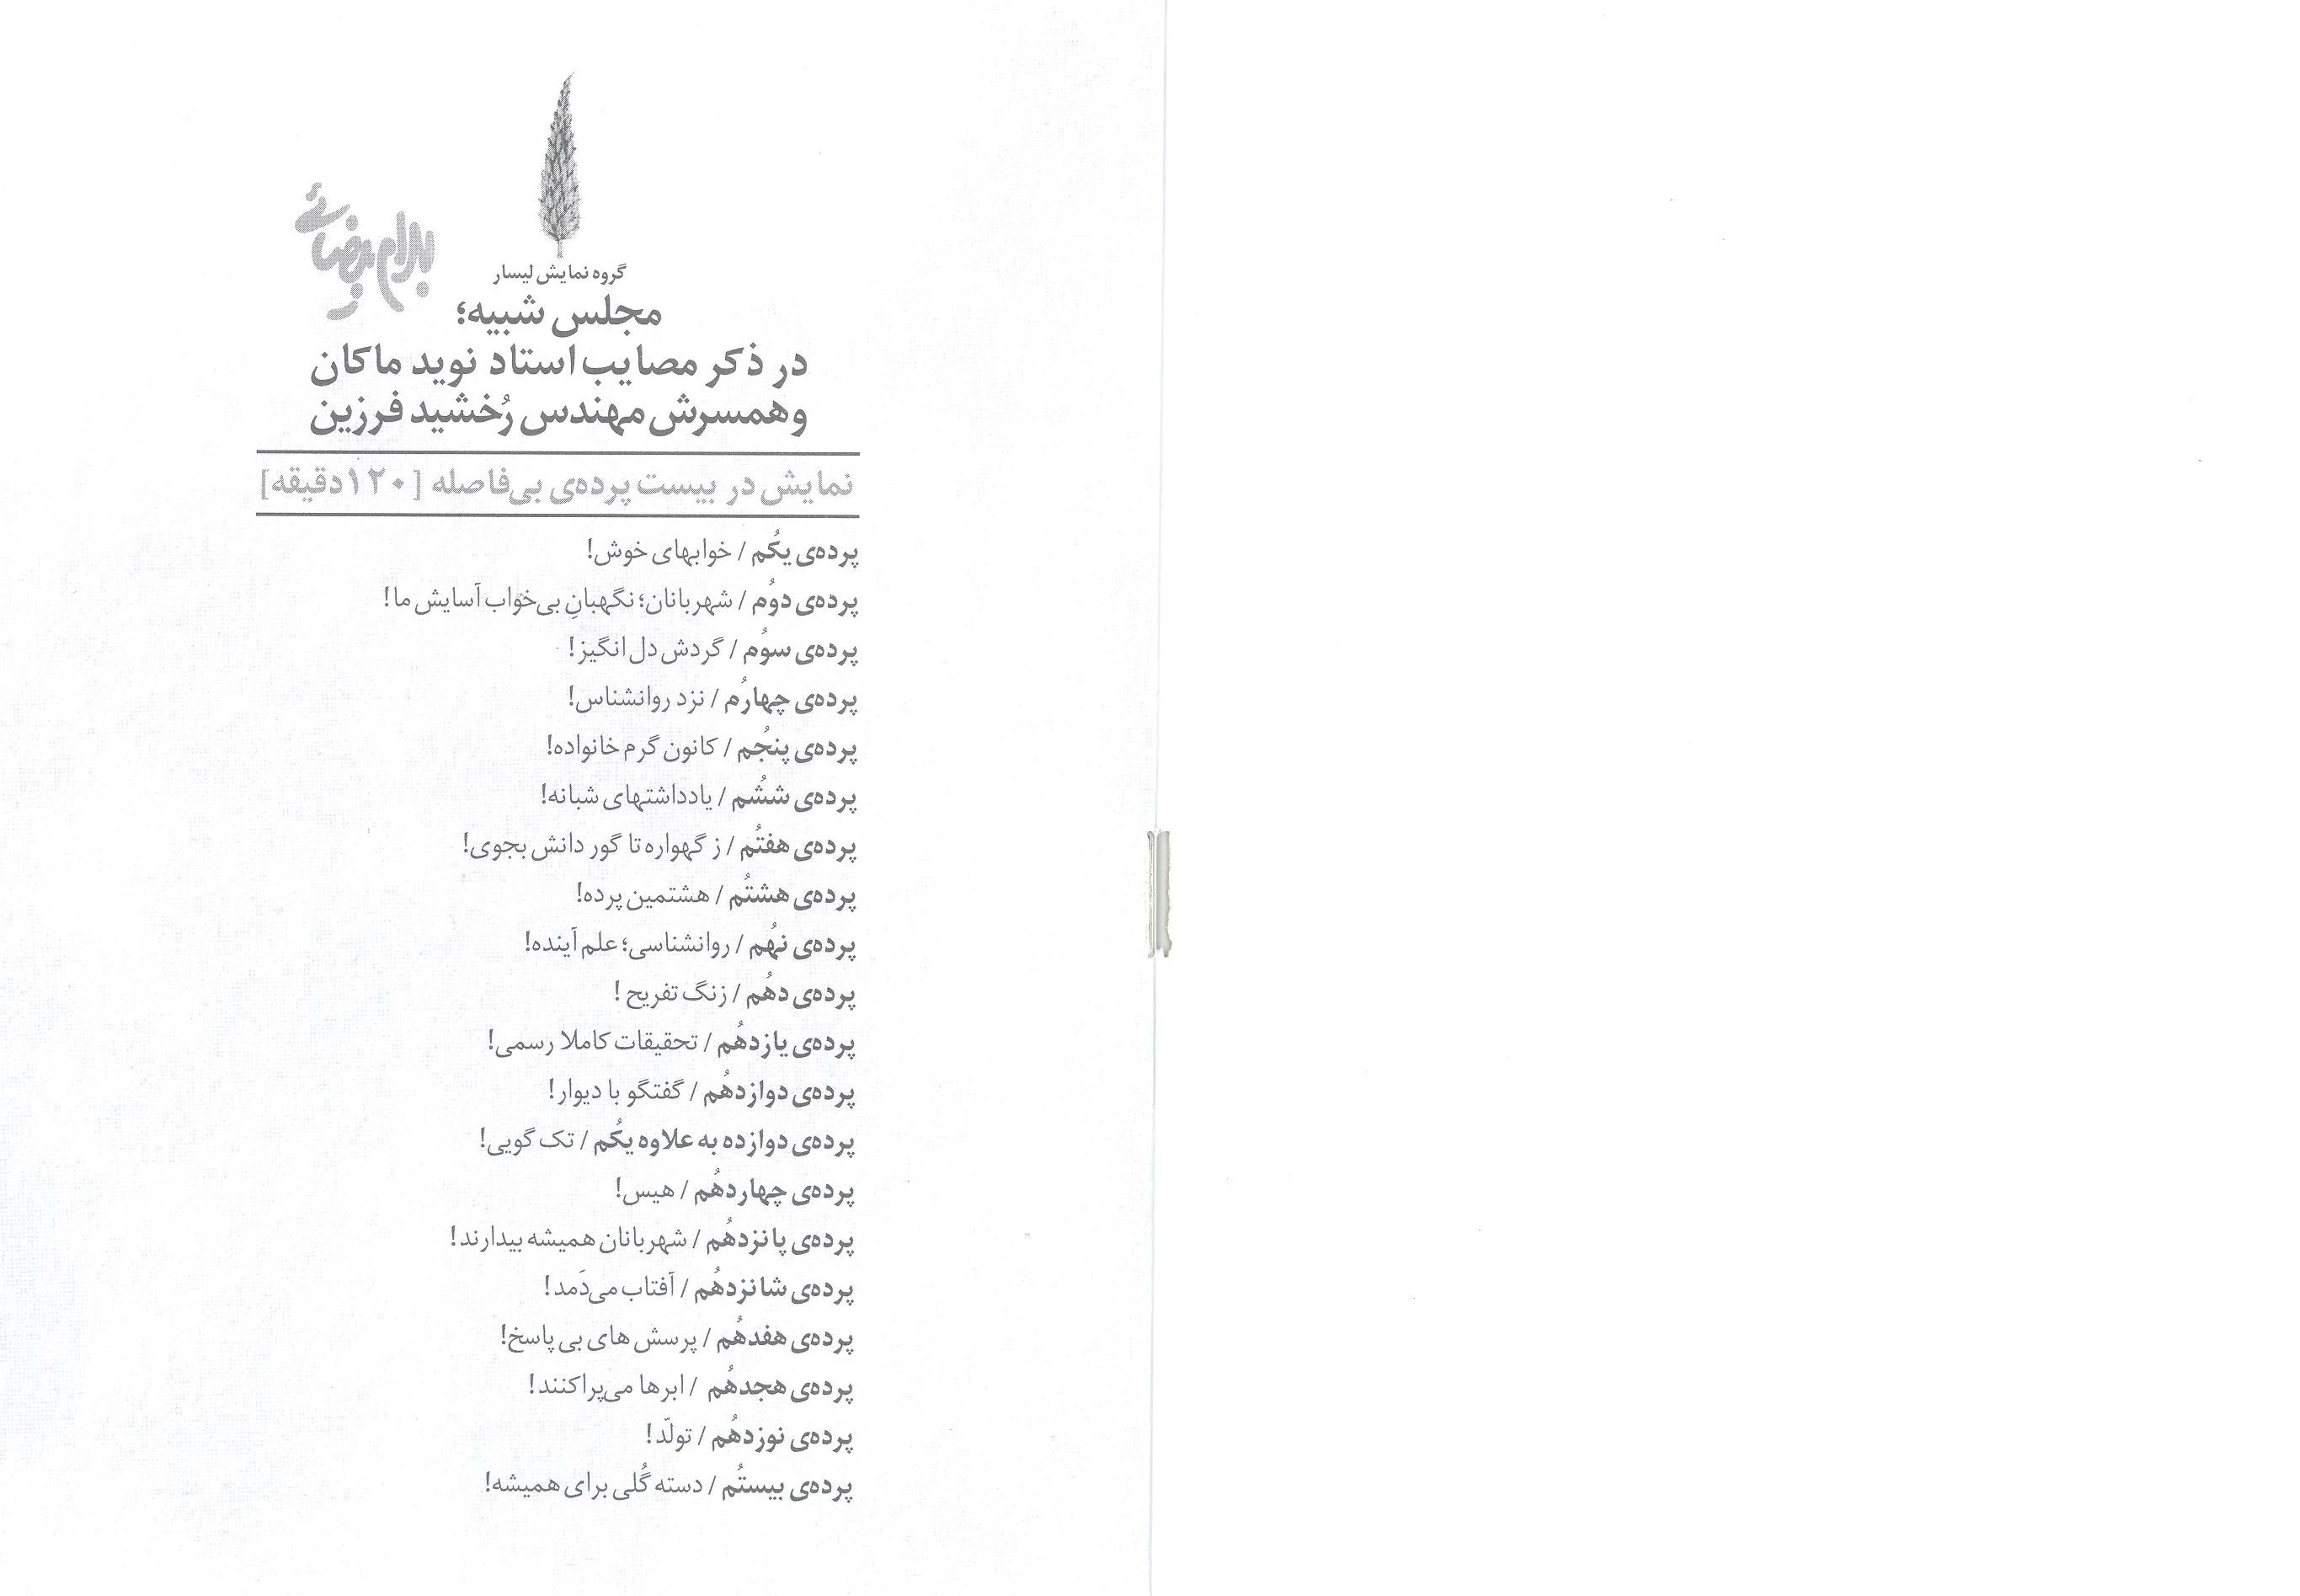 بهرام بیضائی
گروه نمایش لیسار
مجلس شبیه؛
در ذکر مصایب استاد نوید ماکان
و همسرش مهندس رُخشید فرزین
نمایش در بیست پرده‌ی بی‌فاصله [۱۲۰دقیقه]
پرده‌ی یکُم / خوابهای خوش!
پرده‌ی دوُم / شهربانان؛ نگهبانِ بی‌خواب آسایش ما!
پرده‌ی سوُم / گردش دل انگیز!
پرده‌ی چهارُم / نزد روانشناس!
پرده‌ی پنجُم / کانون گرم خانواده!
پرده‌ی ششُم / یادداشتهای شبانه!
پرده‌ی هفتُم / ز گهواره تا گور دانش بجوی!
پرده‌ی هشتُم / هشتمین پرده!
پرده‌ی نهُم / روانشناسی؛ علم آینده!
پرده‌ی دهُم / زنگ تفریح !
پرده‌ی یازدهُم / تحقیقات کاملا رسمی!
پرده‌ی دوازدهُم / گفتگو با دیوار!
پرده‌ی دوازده به علاوه یکُم / تک گویی!
پرده‌ی چهاردهُم / هیس!
پرده‌ی پانزدهُم / شهربانان همیشه بیدارند!
پرده‌ی شانزدهُم / آفتاب می‌دَمد!
پرده‌ی هفدهُم / پرسش های بی پاسخ!
پرده‌ی هجدهُم / ابرها می‌پراکنند!
پرده‌ی نوزدهُم / تولّد!
پرده‌ی بیستُم / دسته گُلی برای همیشه!